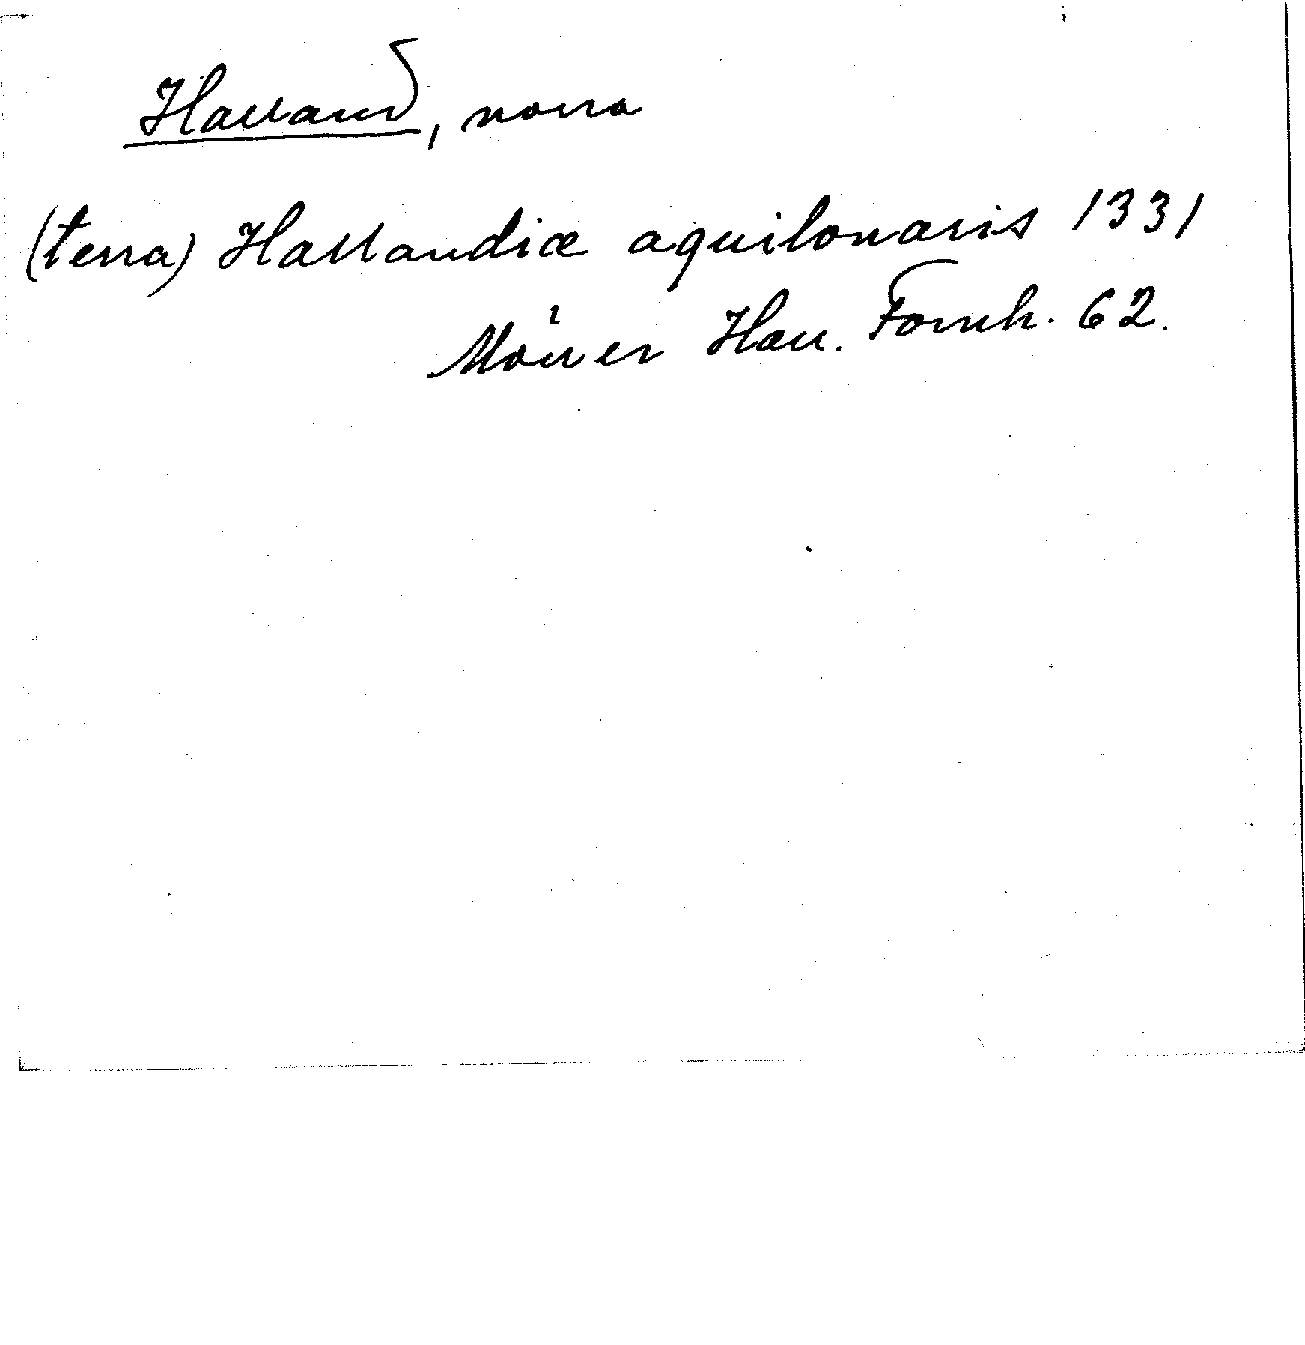 Halland, norra
(terra) Hallandiæ aquilonaris 1331
Möller Hall. Fornh. 62.